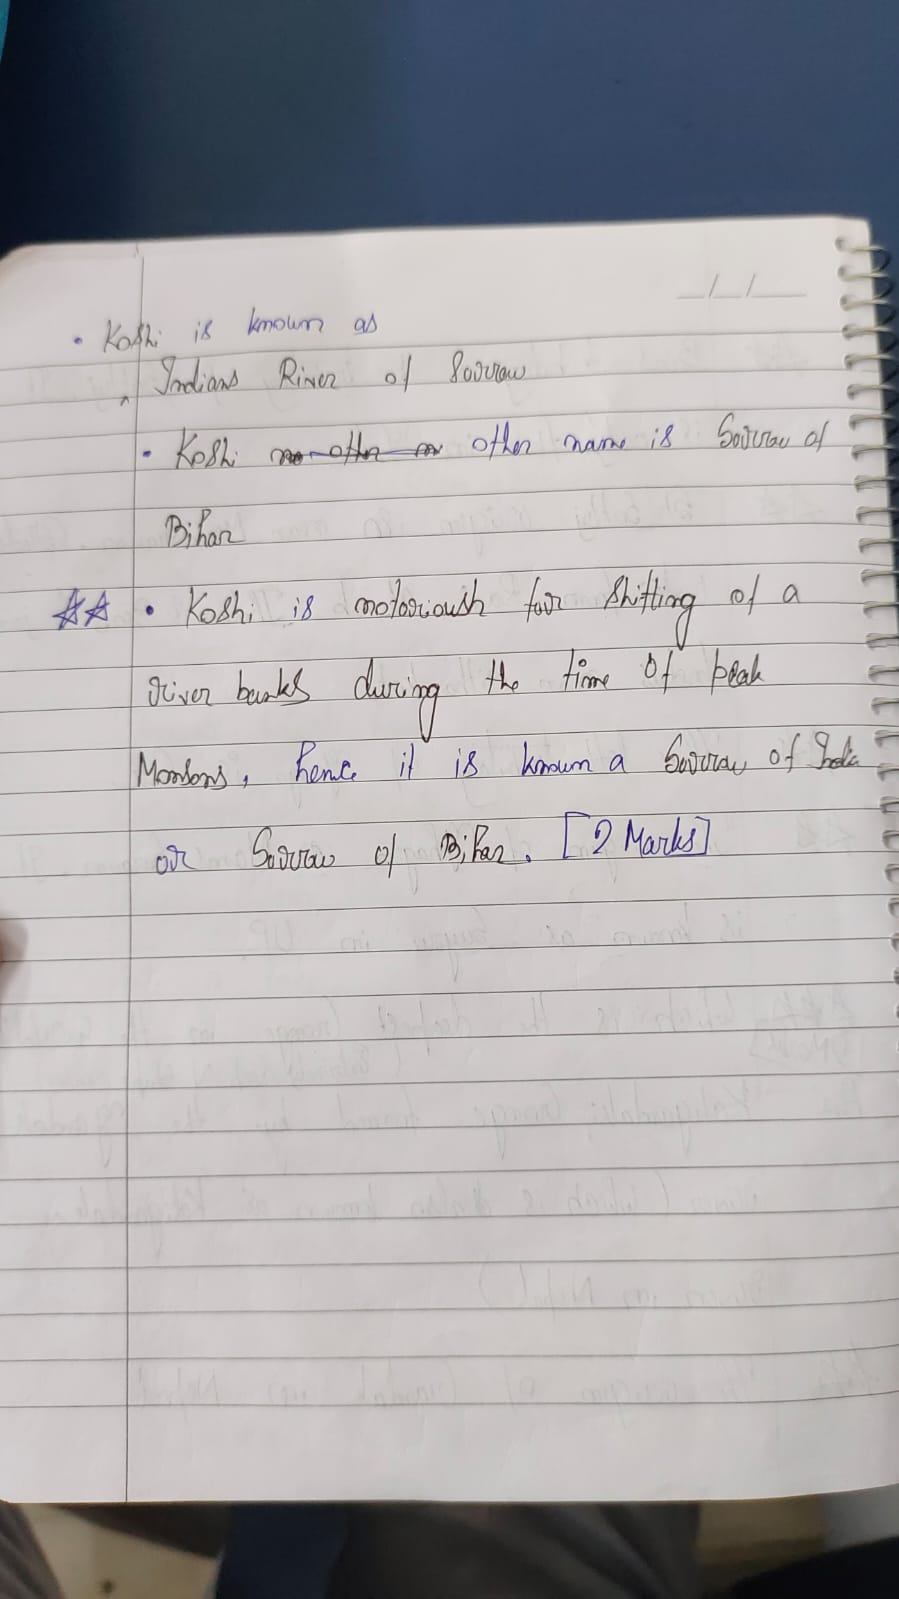 • Koshi is known as
Indians River of Sorrow
• Koshi no other m other name is Sorrow of
Bihar
☆☆ • Koshi is notoriously for shifting of a
river banks during the time of peak
Monsons, hence it is known a Sorrow of India
or Sorrow of Bihar. [2 Marks]